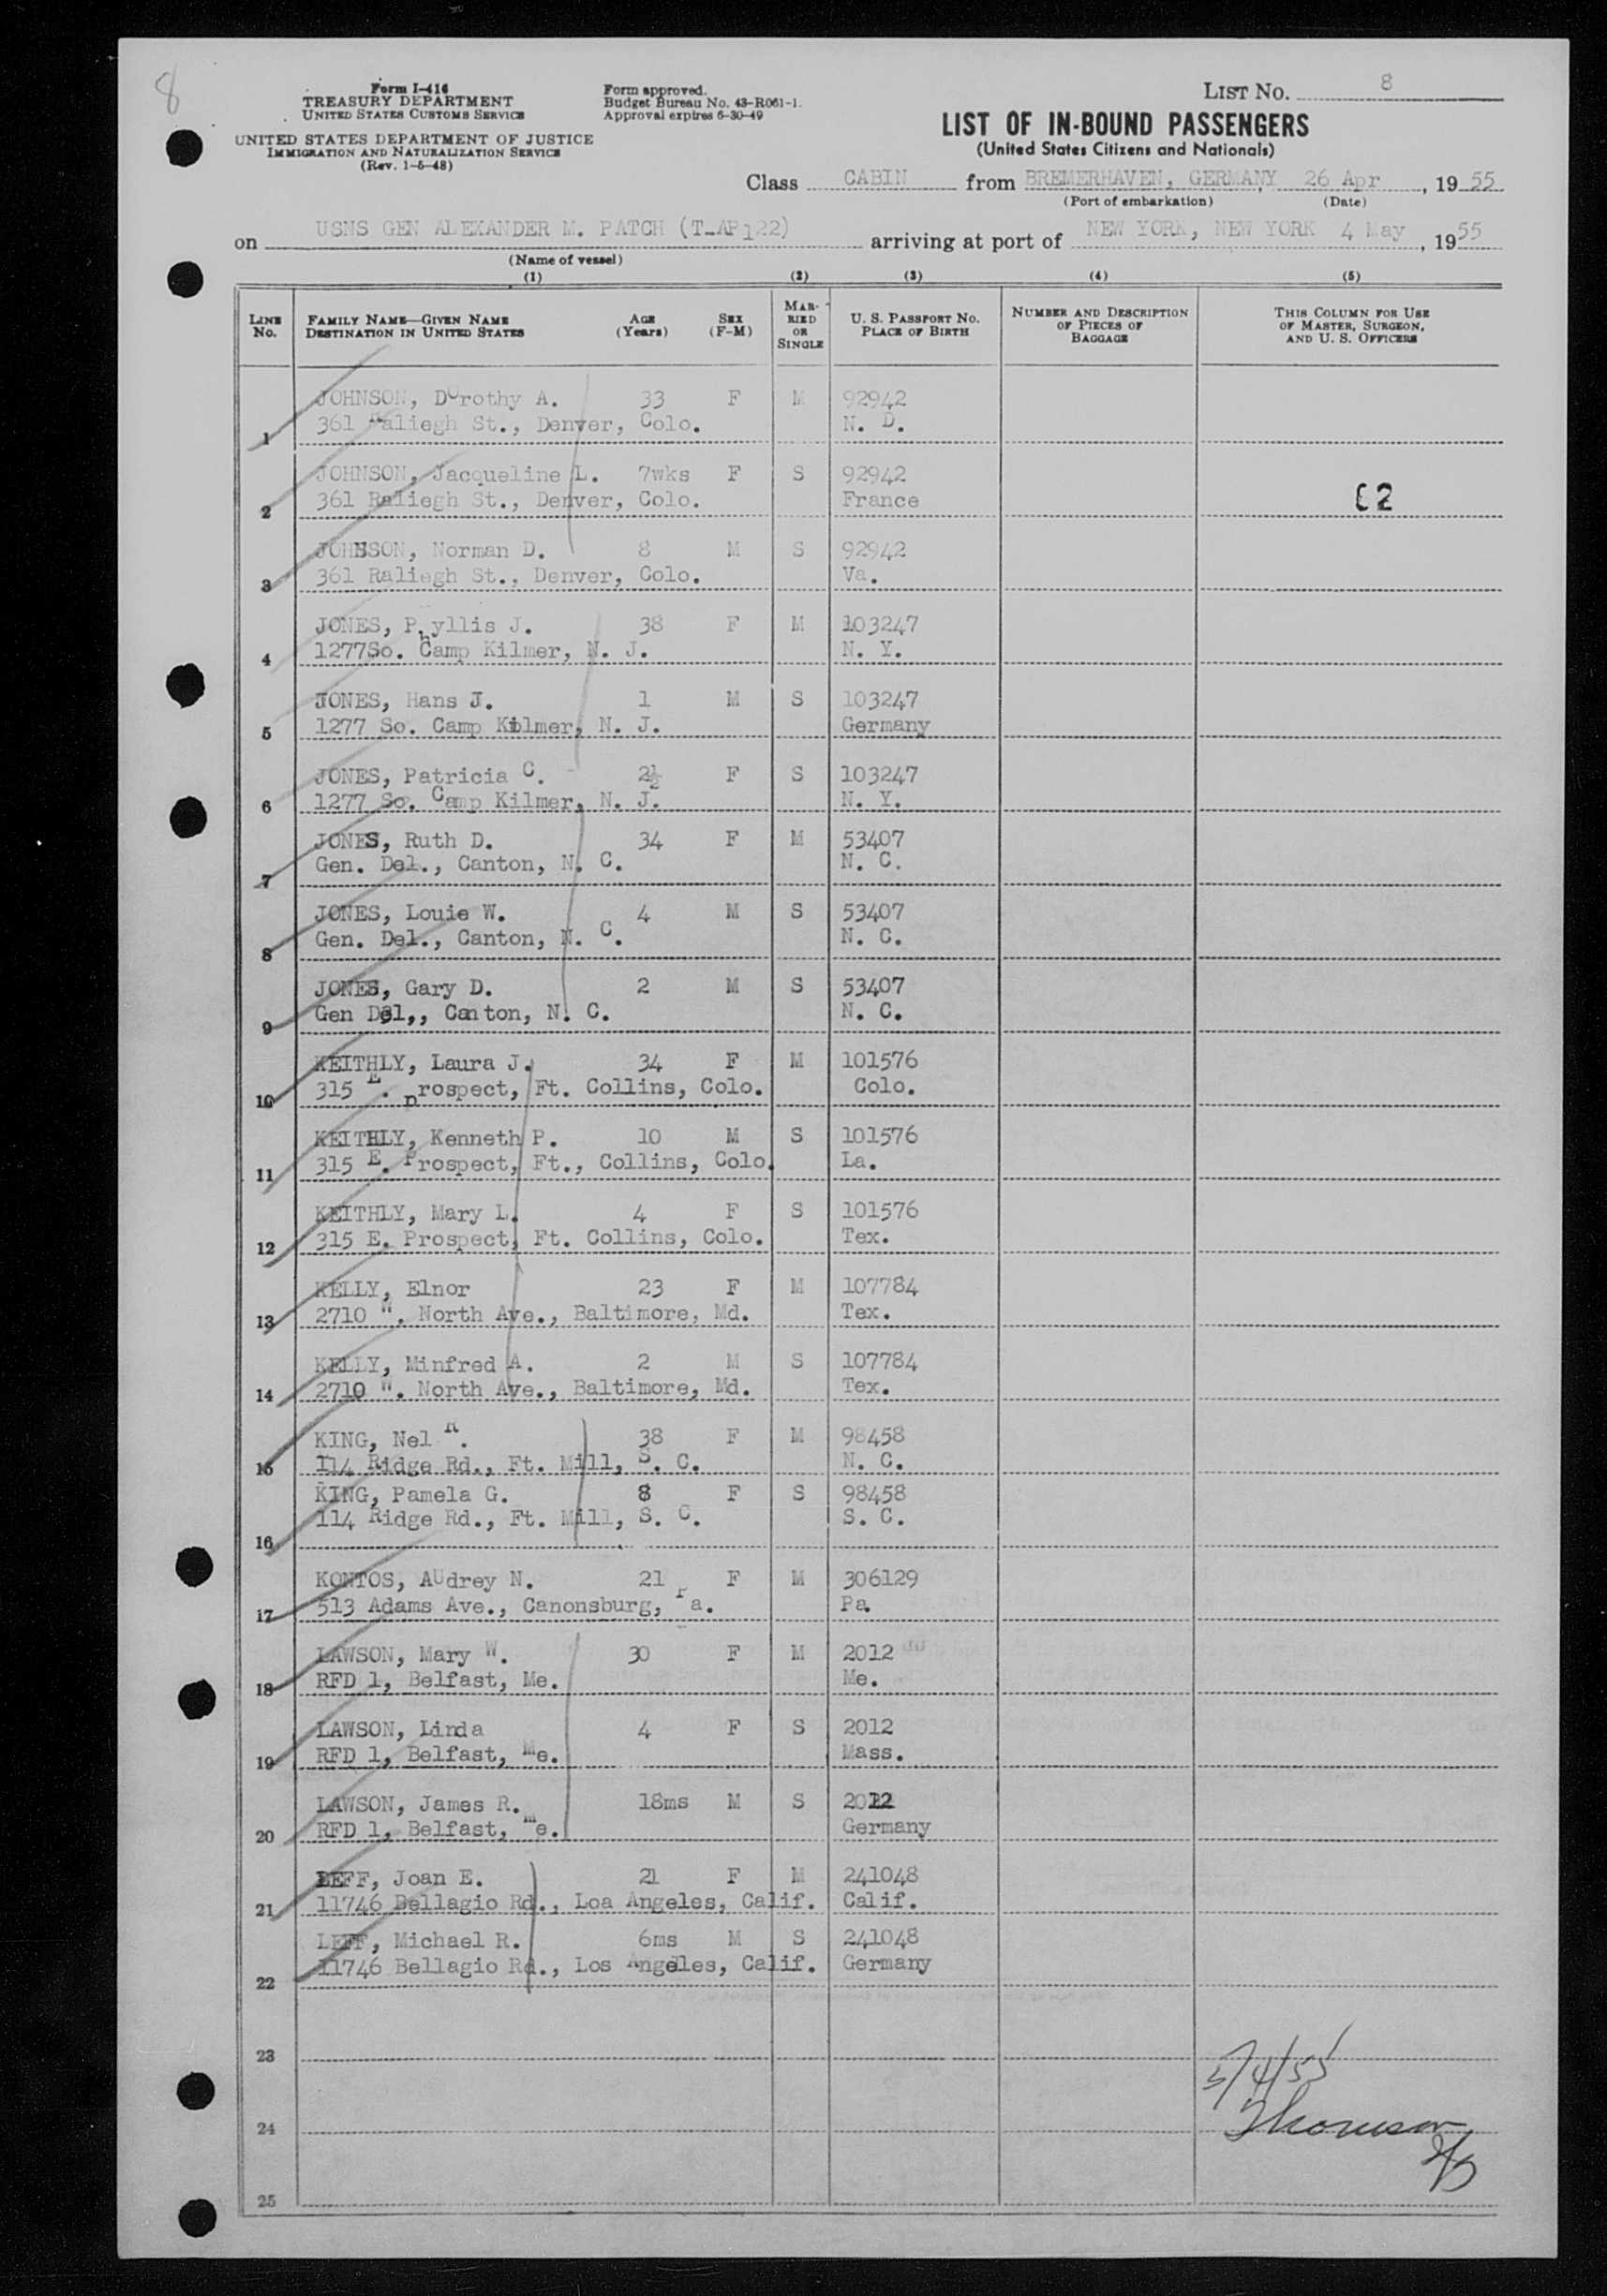 8
Form I-416
TREASURY DEPARTMENT
UNITED STATES CUSTOMS SERVICE
UNITED STATES DEPARTMENT OF JUSTICE
IMMIGRATION AND NATURALIZATION SERVICE
(Rev. 1-5-48)
Form approved.
Budget Bureau No. 43-R061-1.
Approval expires 6-30-49
LIST NO. 8
LIST OF IN-BOUND PASSENGERS
(United States Citizens and Nationals)
Class CABIN from BREMERHAVEN, GERMANY, 26 Apr, 1955
(Port of embarkation) (Date)
on USNS GEN ALEXANDER M. PATCH (T-AP122) arriving at port of NEW YORK, NEW YORK 4 May, 1955
(Name of vessel)
(1) (2) (3) (4) (5)
LINE NO. FAMILY NAME—GIVEN NAME DESTINATION IN UNITED STATES AGE (Years) SEX (F-M) MARRIED OR SINGLE U. S. PASSPORT NO. PLACE OF BIRTH NUMBER AND DESCRIPTION OF PIECES OF BAGGAGE THIS COLUMN FOR USE OF MASTER, SURGEON, AND U. S. OFFICERS
JOHNSON, Dorothy A. 33 F M 92942
1 361 Raliegh St., Denver, Colo. N. D.
JOHNSON, Jacqueline L. 7wks F S 92942
2 361 Raliegh St., Denver, Colo. France 62
JOHNSON, Norman D. 8 M S 92942
3 361 Raliegh St., Denver, Colo. Va.
JONES, Phyllis J. 38 F M 103247
4 1277So. Camp Kilmer, N. J. N. Y.
JONES, Hans J. 1 M S 103247
5 1277 So. Camp Kilmer, N. J. Germany
JONES, Patricia C. 2½ F S 103247
6 1277 So. Camp Kilmer, N. J. N. Y.
JONES, Ruth D. 34 F M 53407
7 Gen. Del., Canton, N. C. N. C.
JONES, Louie W. 4 M S 53407
8 Gen. Del., Canton, N. C. N. C.
JONES, Gary D. 2 M S 53407
9 Gen Del,, Canton, N. C. N. C.
KEITHLY, Laura J. 34 F M 101576
10 315 E. Prospect, Ft. Collins, Colo. Colo.
KEITHLY, Kenneth P. 10 M S 101576
11 315 E. Prospect, Ft., Collins, Colo. La.
KEITHLY, Mary L. 4 F S 101576
12 315 E. Prospect, Ft. Collins, Colo. Tex.
KELLY, Elnor 23 F M 107784
13 2710 W. North Ave., Baltimore, Md. Tex.
KELLY, Minfred A. 2 M S 107784
14 2710 W. North Ave., Baltimore, Md. Tex.
KING, Nel R. 38 F M 98458
15 114 Ridge Rd., Ft. Mill, S. C. N. C.
KING, Pamela G. 8 F S 98458
16 114 Ridge Rd., Ft. Mill, S. C. S. C.
KONTOS, AUdrey N. 21 F M 306129
17 513 Adams Ave., Canonsburg, Pa. Pa.
LAWSON, Mary W. 30 F M 2012
18 RFD 1, Belfast, Me. Me.
LAWSON, Linda 4 F S 2012
19 RFD 1, Belfast, Me. Mass.
LAWSON, James R. 18ms M S 2012
20 RFD 1, Belfast, me. Germany
LEFF, Joan E. 21 F M 241048
21 11746 Bellagio Rd., Loa Angeles, Calif. Calif.
LEFF, Michael R. 6ms M S 241048
22 11746 Bellagio Rd., Los Angeles, Calif. Germany
23
5/4/55
24 Thomson
25